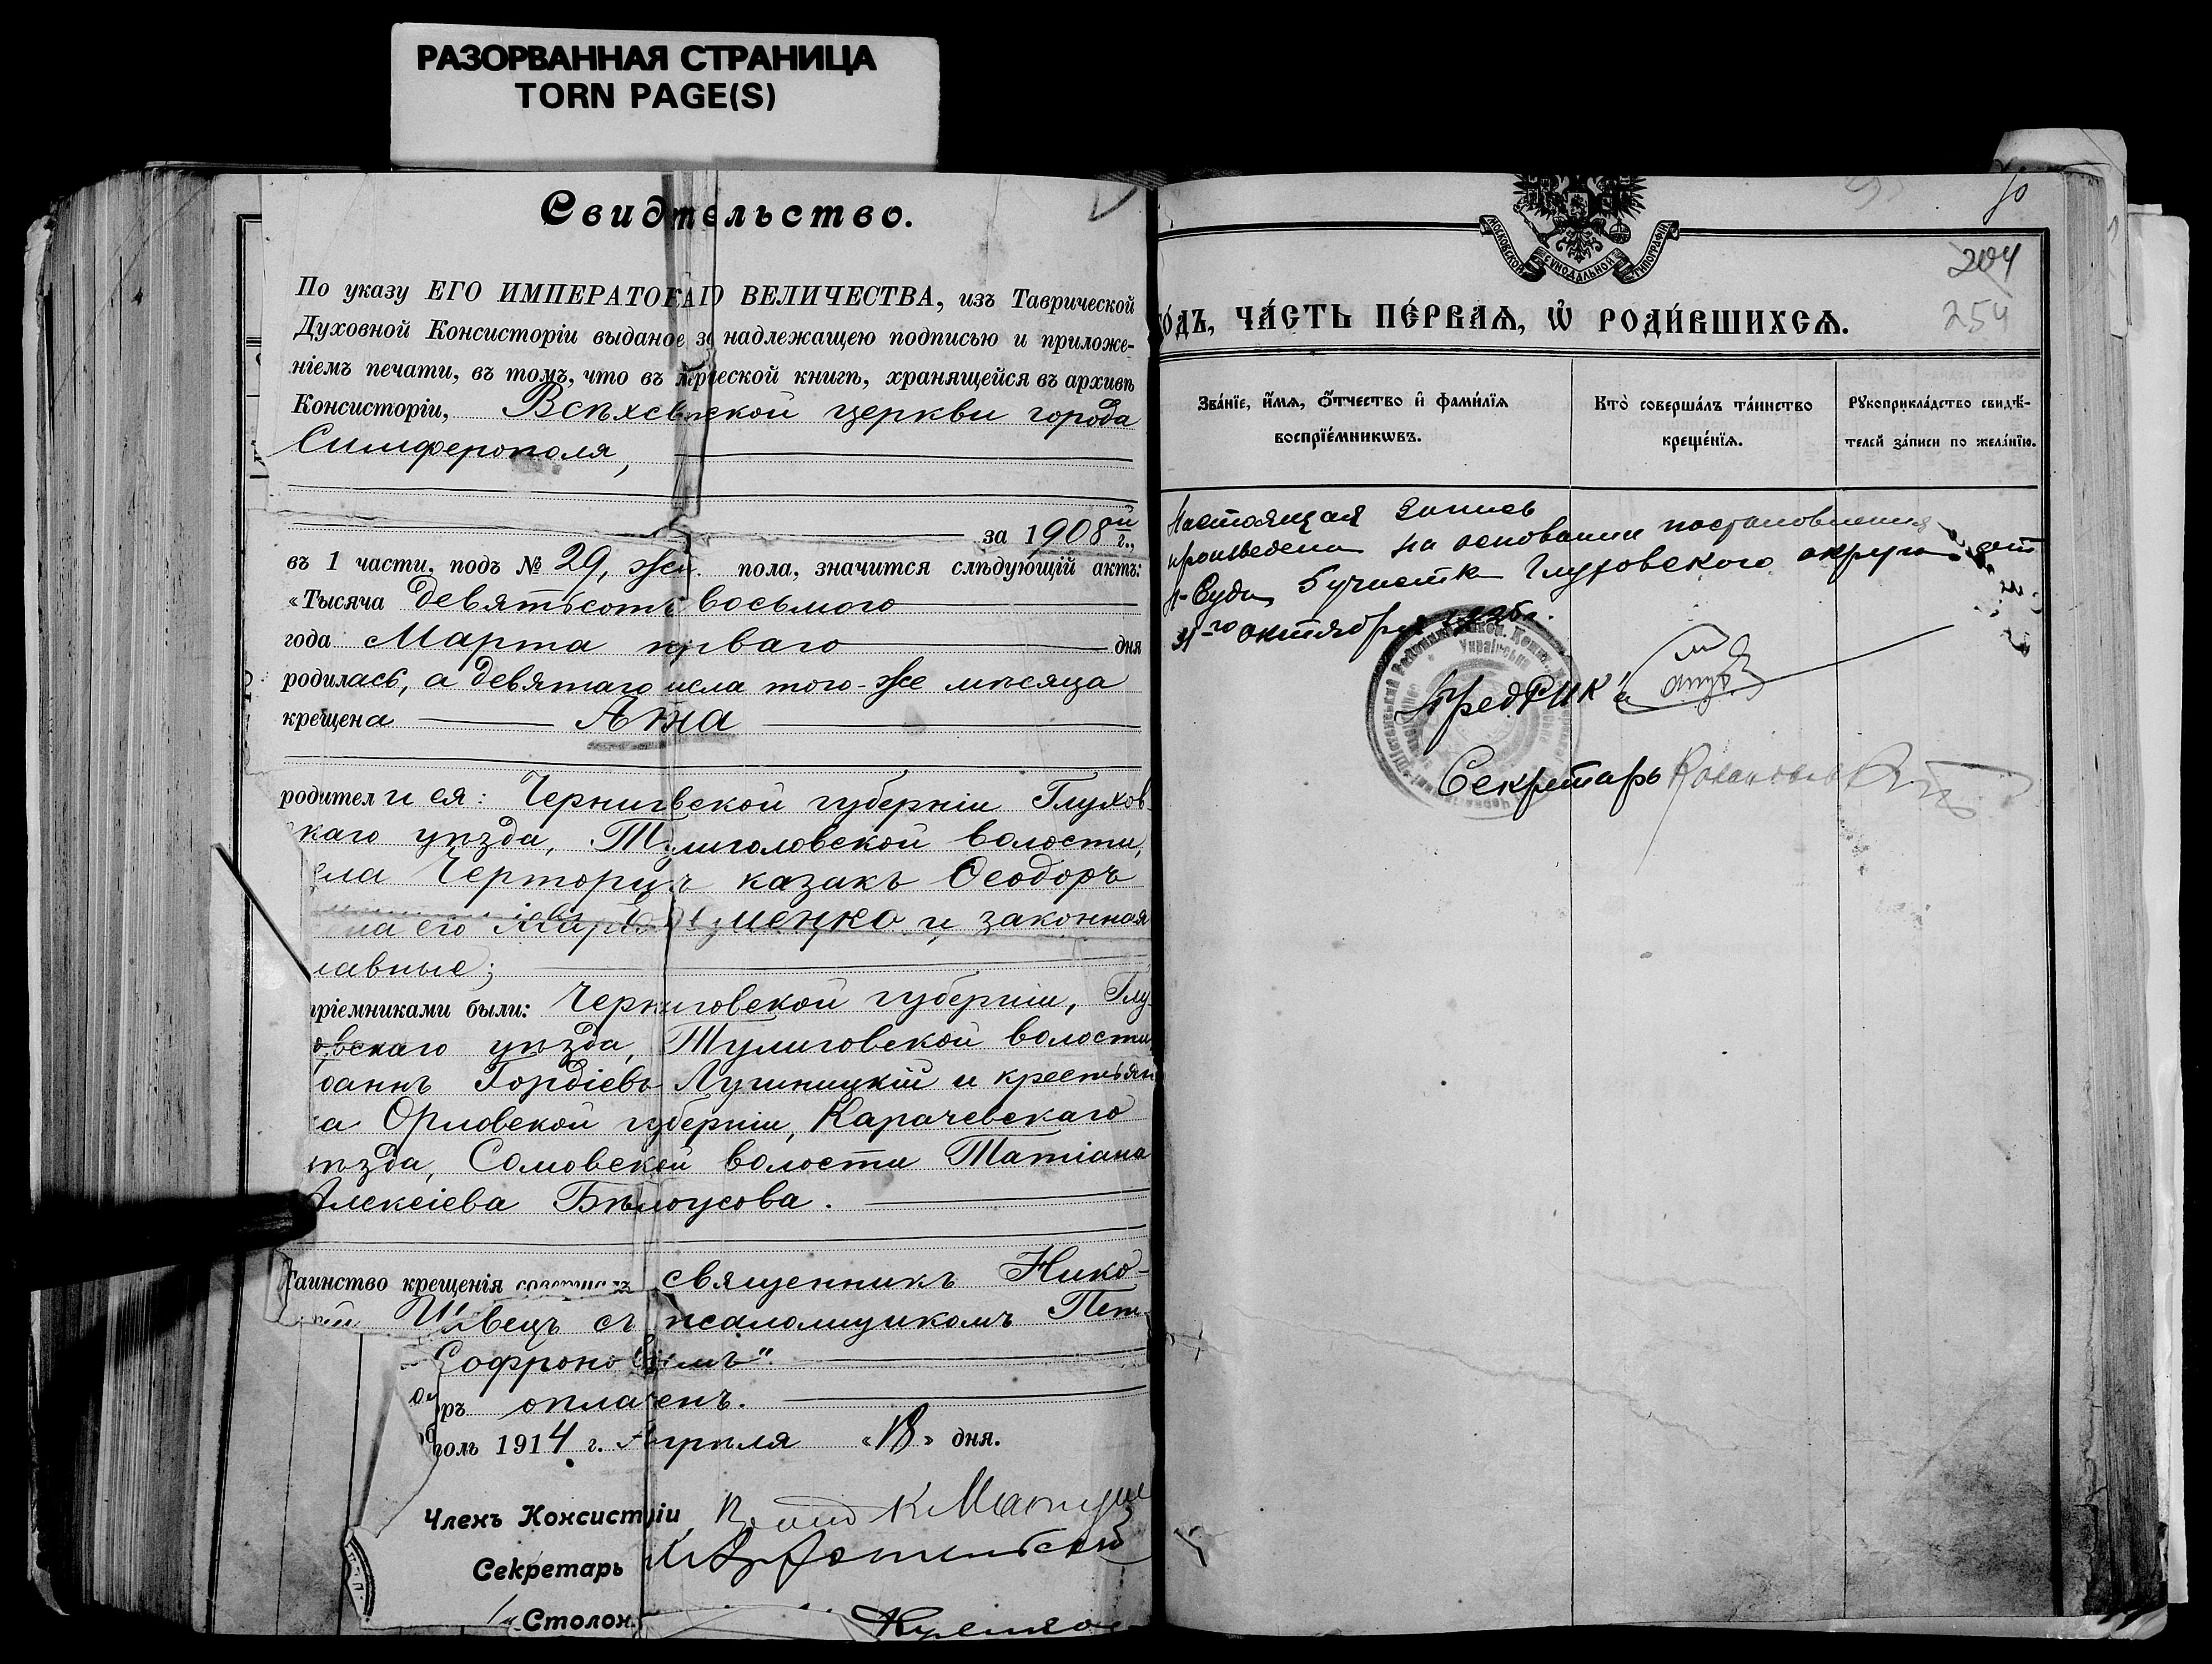 РАЗОРВАННАЯ СТРАНИЦА
TORN PAGE(S)
Свидѣтельство.
По указу ЕГО ИМПЕРАТОРСКАГО ВЕЛИЧЕСТВА, изъ Таврической
Духовной Консисторіи выдано за надлежащею подписью и приложе-
ніемъ печати, въ томъ, что въ метрической книгѣ, хранящейся въ архивѣ
Консисторіи, Всѣхсвятской церкви города
Симферополя,
за 1908ый г.,
въ 1 части, подъ № 29, жен. пола, значится слѣдующій актъ:
«Тысяча девятьсотъ восьмого
года Марта перваго дня
родилась, а девятаго числа того-же мѣсяца
крещена Анна
родители ея: Черниговской губерніи Глухов-
скаго уѣзда, Тулиголовской волости,
села Черторигъ казакъ Ѳеодоръ
менко и законная
на его
лавные;
пріемниками были: Черниговской губерніи, Глу-
ховскаго уѣзда, Тулиговской волости
оаннъ Гордіевъ Лучницкій и крестьян
ка Орловской губерніи, Карачевскаго
уѣзда, Сомовской волости Татіана
Алексіева Бѣлоусова.
Таинство крещенія совершалъ священникъ Нико-
лай Швецъ съ псаломщикомъ Пет-
Софроновымъ".
оръ оплаченъ.
поль 1914 г. Апрѣля «18» дня.
Членъ Консисторіи
Секретарь
Столон.
МОСКОВСКОЙ СѴНОДАЛЬНОЙ ТИПОГРАФІИ
50
204
254
го́дъ, ча́сть пе́рваѧ, ѡ҆ роди́вшихсѧ.
Зва́нїе, и҆́мѧ, ѻ҆́тчество и҆ фамі́лїѧ
воспрїе́мникѡвъ.
Кто̀ соверша́лъ та́инство
креще́нїѧ.
Рꙋкоприкла́дство свидѣ́-
телей за́писи по жела́нїю.
Настоящая запись
произведена на основании постановления
Н-Суда 5 участка Глуховского округа от
октября
ПредРИК'а
Секретарь